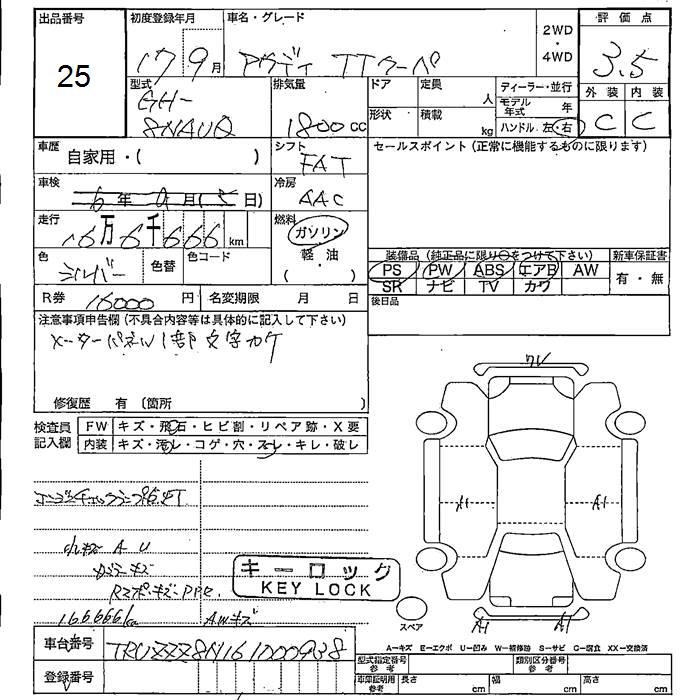 出品番号
25
初度登録年月
17 9月
車名・グレード
アウディ TTクーペ
2WD
・
4WD
評価点
3.5
型式
GH-
8NAUQ
排気量
1800cc
ドア
定員
人
形状
積載
kg
ディーラー・並行
モデル年式
年
ハンドル 左・右
外装 内装
C C
車歴
自家用・( )
シフト
FAT
セールスポイント(正常に機能するものに限ります)
車検
6年9月(5日)
冷房
AAC
走行
16万6千666km
燃料
ガソリン
軽・油
( )
色
シルバー
色替
色コード
装備品(純正品に限り○をつけて下さい)
新車保証書
PS PW ABS エアB AW
SR ナビ TV カワ
有・無
R券
16000円
名変期限 月 日
後日品
注意事項申告欄(不具合内容等は具体的に記入して下さい)
メーターパネル1部文字カケ
修復歴 有(箇所 )
検査員
記入欄
FW キズ・飛石・ヒビ割・リペア跡・X要
内装 キズ・汚レ・コゲ・穴・スレ・キレ・破レ
エンジンチェックランプ点灯
小キズ A U
キズ
166666km
AWキズ
キーロック
KEY LOCK
A1
A1
A1
A1
スペア
A-キズ E-エクボ U-凹み W-補修跡 S-サビ C-腐食 XX-交換済
車台番号
TRUZZZ8N161000938
登録番号
型式指定番号
参考
類別区分番号
参考
車庫証明用
参考
長さ cm
幅 cm
高さ cm